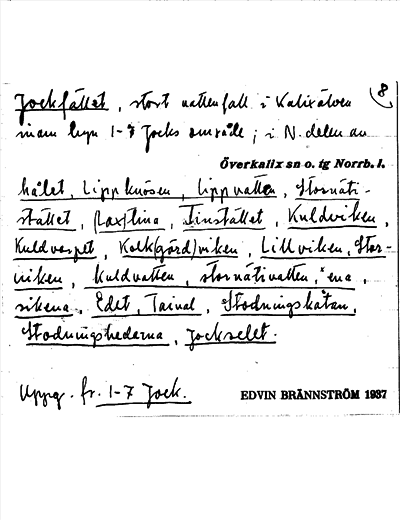 Jockfallet, stort vattenfall i Kalixälven 8
inom byn 1-7 Jocks område; i N. delen av
Överkalix sn o. tg Norrb. l.
hålet, Lippknösen, Lippvatten, Storsnäti-
stället, (Lax)tina, Tinstället, Kuldviken,
Kuldvarpet, Kalk(gård)viken, Lillviken, Stor-
viken, Kuldvatten, storsnätivatten, "ena,
sikena, Edet, Tainal, Stodningskåtan,
Stodningshedarna, Jockselet.
Uppg. fr. 1-7 Jock.
EDVIN BRÄNNSTRÖM 1937